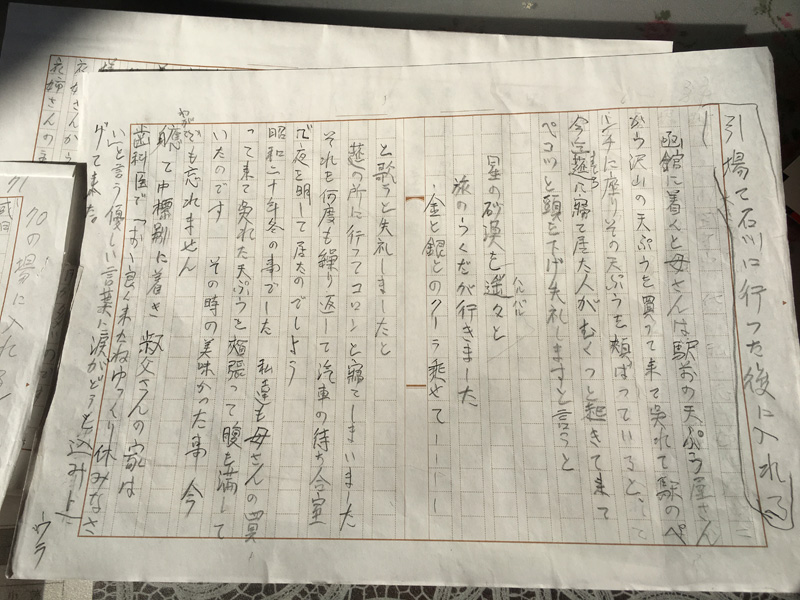 引場で石川に行った後に入れる
函館に着くと母さんは駅前の天ぷら屋さん
から沢山の天ぷらを買って来て呉れて駅のベ
ンチに座りその天ぷらを頬ばっていると、
今迄莚に寝て居た人がむくっと起きて来て
ペコッと頭を下げ失礼しますと言うと
星の砂漠を遥々と
ハルバル
旅のらくだが行きました
金と銀とのクーラ乗せてーーーー
と歌うと失礼しましたと
莚の所に行ってコロンと寝てしまいました
それを何度も繰り返して汽車の待ち合室
で夜を明して居たのでしよう
昭和二十年冬の事でした 私達も母さんの買
って来て呉れた天ぷらを頬張って腹を満して
いたのです その時の美味かった事 今
でも忘れません
やがて中標別に着き 叔父さんの家は
歯科医で「おゝ良く来たねゆっくり休みなさ
い」と言う優しい言葉に涙がどうも込み上
げて来た
ウラ
71
70の場に入れる
衣姉さんの